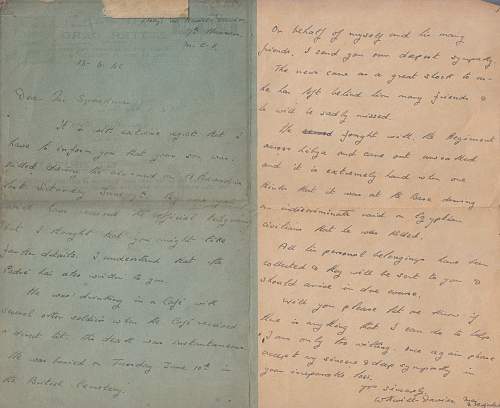 7th Hussars
M. E. F.
13-6-41
Dear Mr
It is with extreme regret that I
have to inform you that your son was
killed during the air raid on Alexandria
last Saturday June 7th.
have received the official telegram
but I thought that you might like
further details. I understand that the
Padre has also written to you.
He was drinking in a Café with
several other soldiers when the Café received
a direct hit. His death was instantaneous
He was buried on Tuesday June 10th in
the British Cemetery.
On behalf of myself and his many
friends, I send you our deepest sympathy
The news came as a great shock to us
he has left behind him many friends &
he will be sadly missed.
He fought with the Regiment
across Libya and came out unscathed
and it is extremely hard when one
thinks that it was at the Base during
an indiscriminate raid on Egyptian
civilians that he was killed.
All his personal belongings have been
collected & they will be sent to you &
should arrive in due course.
Will you please let me know if
there is anything that I can do to help
I am only too willing. Once again please
accept my sincere & deep sympathy in
your irreparable loss.
Yrs sincerely